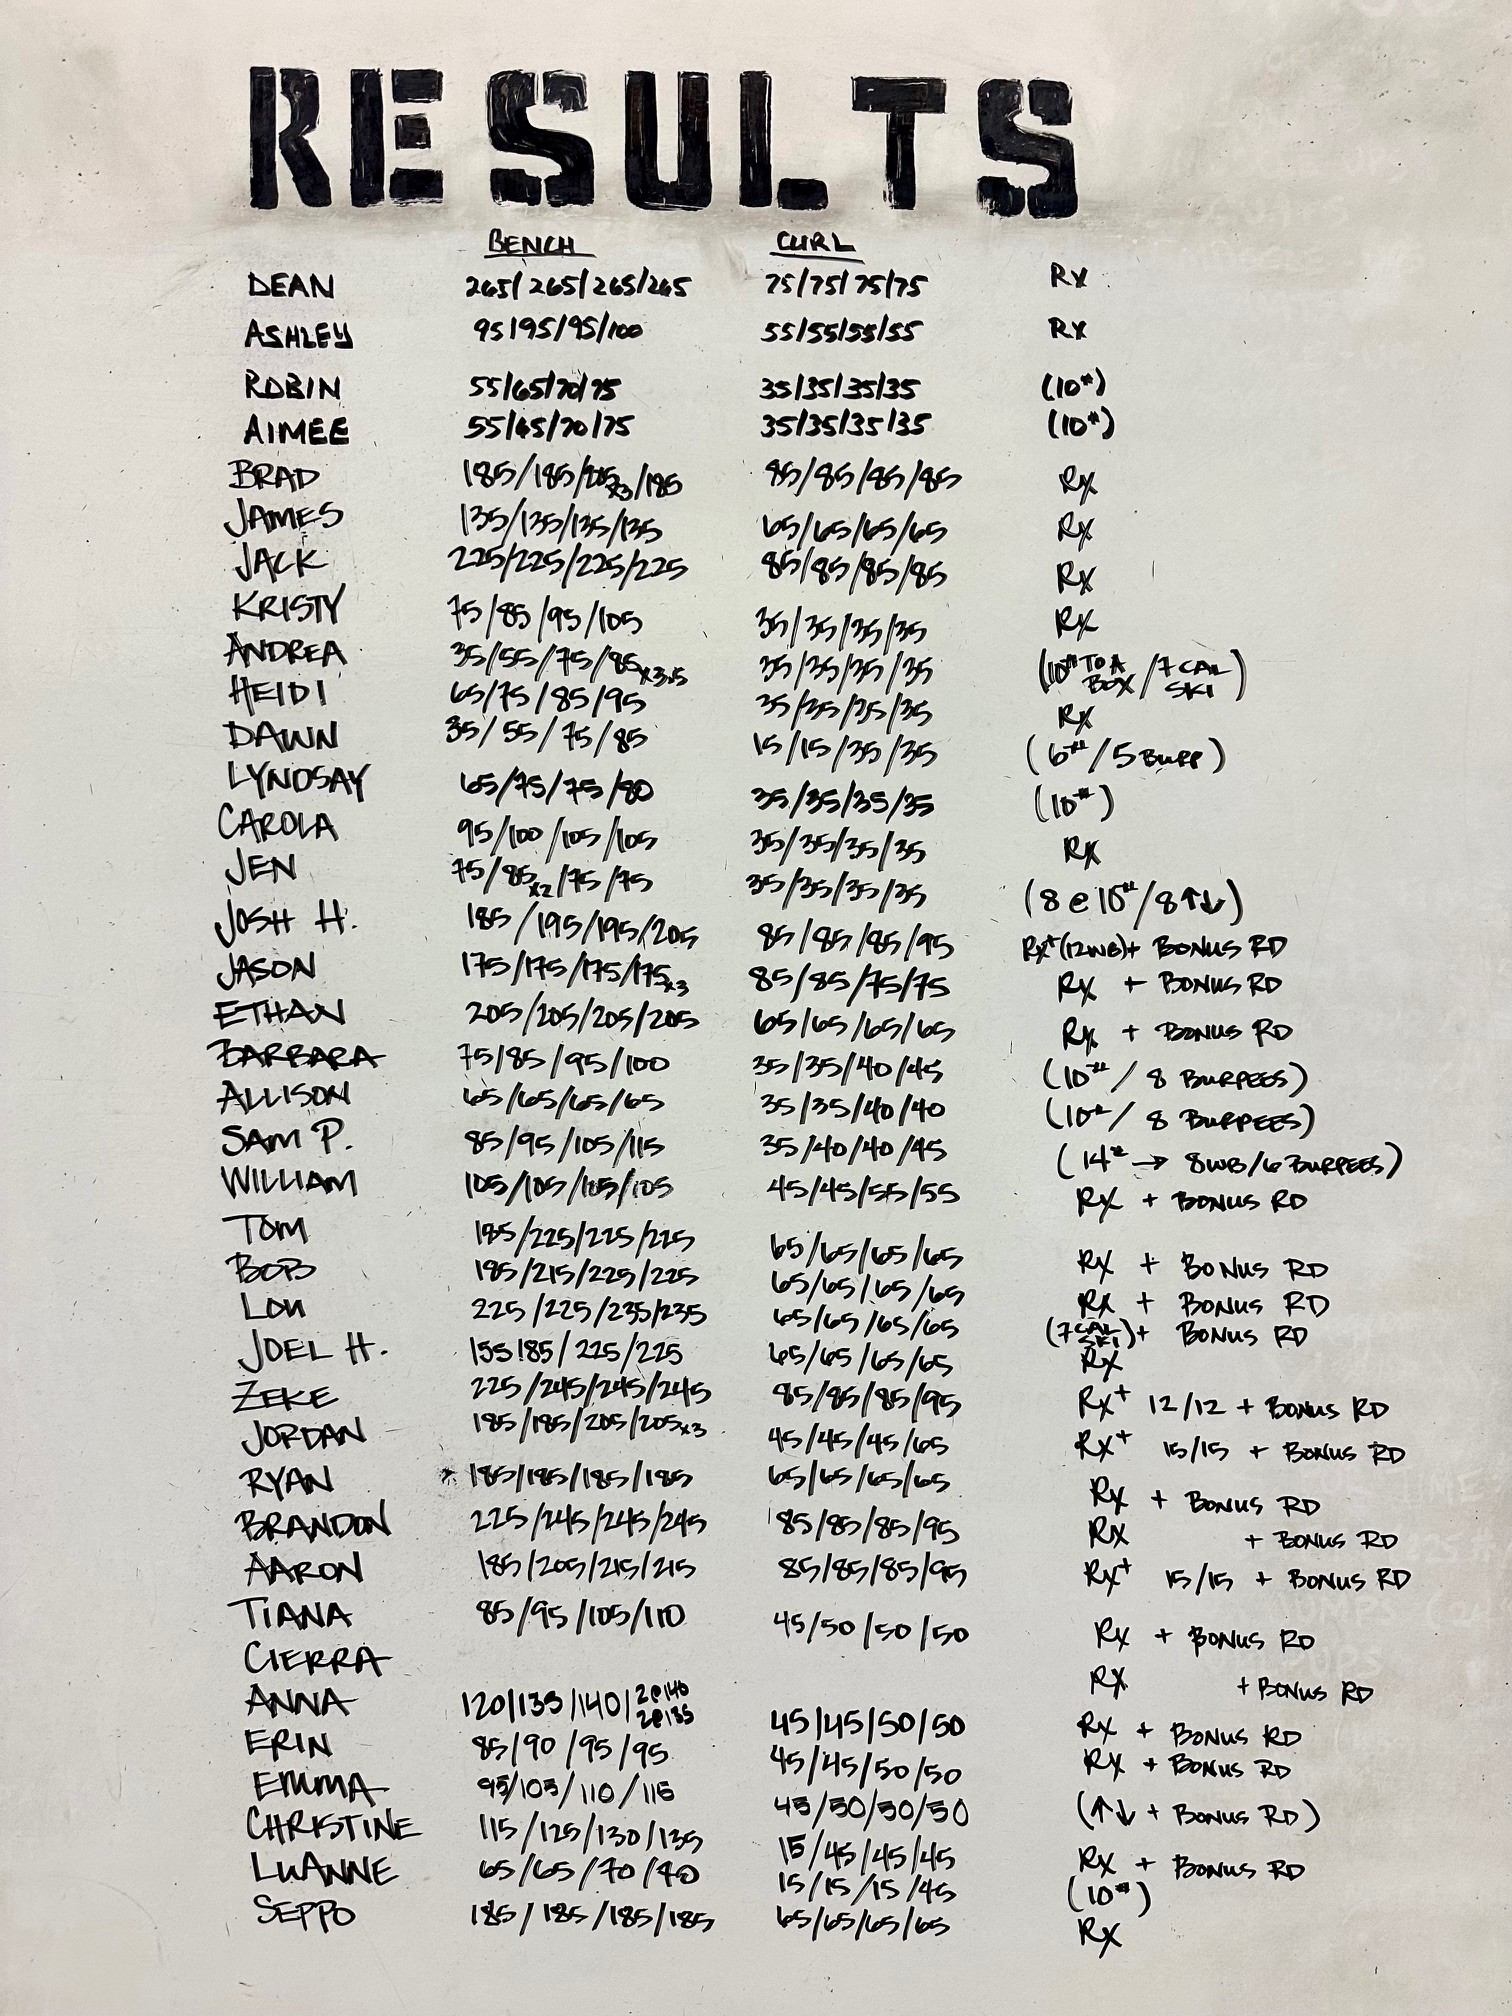 RESULTS
BENCH CURL
DEAN 265/265/265/265 75/75/75/75 RX
ASHLEY 95/95/95/100 55/55/55/55 RX
ROBIN 55/65/70/75 35/35/35/35 (10#)
AIMEE 55/65/70/75 35/35/35/35 (10#)
BRAD 185/185/205x3/185 85/85/85/85 RX
JAMES 135/135/135/135 65/65/65/65 RX
JACK 225/225/225/225 85/85/85/85 RX
KRISTY 75/85/95/105 35/35/35/35 RX
ANDREA 35/55/75/85x3.5 35/35/35/35 (10# TO A BOX/7 CAL SKI)
HEIDI 65/75/85/95 35/35/35/35 RX
DAWN 35/55/75/85 15/15/35/35 (6#/5 BURP)
LYNDSAY 65/75/75/80 35/35/35/35 (10#)
CAROLA 95/100/105/105 35/35/35/35 RX
JEN 75/85x2/75/75 35/35/35/35 (8@10#/8↑↓)
JOSH H. 185/195/195/205 85/85/85/95 RX+(12WB)+ BONUS RD
JASON 175/175/175/175x3 85/85/75/75 RX + BONUS RD
ETHAN 205/205/205/205 65/65/65/65 RX + BONUS RD
BARBARA 75/85/95/100 35/35/40/45 (10#/ 8 BURPEES)
ALLISON 65/65/65/65 35/35/40/40 (10#/ 8 BURPEES)
SAM P. 85/95/105/115 35/40/40/45 (14# → 8WB/6 BURPEES)
WILLIAM 105/105/105/105 45/45/55/55 RX + BONUS RD
TOM 185/225/225/225 65/65/65/65 RX + BONUS RD
BOB 185/215/225/225 65/65/65/65 RX + BONUS RD
LOU 225/225/235/235 65/65/65/65 (7 CAL SKI)+ BONUS RD
JOEL H. 155 185/225/225 65/65/65/65 RX
ZEKE 225/245/245/245 85/85/85/95 RX+ 12/12 + BONUS RD
JORDAN 185/185/205/205x3 45/45/45/65 RX+ 15/15 + BONUS RD
RYAN 185/185/185/185 65/65/65/65 RX + BONUS RD
BRANDON 225/245/245/245 85/85/85/95 RX + BONUS RD
AARON 185/205/215/215 85/85/85/95 RX+ 15/15 + BONUS RD
TIANA 85/95/105/110 45/50/50/50 RX + BONUS RD
CIERRA RX + BONUS RD
ANNA 120/135/140/2@140 2@135 45/45/50/50 RX + BONUS RD
ERIN 85/90/95/95 45/45/50/50 RX + BONUS RD
EMMA 95/105/110/115 45/50/50/50 (↑↓ + BONUS RD)
CHRISTINE 115/125/130/135 15/45/45/45 RX + BONUS RD
LUANNE 65/65/70/70 15/15/15/45 (10#)
SEPPO 185/185/185/185 65/65/65/65 RX